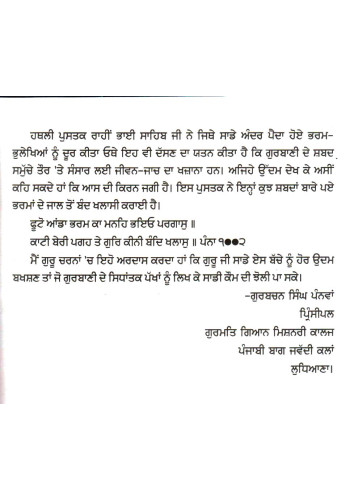 ਹਥਲੀ ਪੁਸਤਕ ਰਾਹੀਂ ਭਾਈ ਸਾਹਿਬ ਜੀ ਨੇ ਜਿਥੇ ਸਾਡੇ ਅੰਦਰ ਪੈਦਾ ਹੋਏ ਭਰਮ-
ਭੁਲੇਖਿਆਂ ਨੂੰ ਦੂਰ ਕੀਤਾ ਓਥੇ ਇਹ ਵੀ ਦੱਸਣ ਦਾ ਯਤਨ ਕੀਤਾ ਹੈ ਕਿ ਗੁਰਬਾਣੀ ਦੇ ਸ਼ਬਦ
ਸਮੁੱਚੇ ਤੌਰ 'ਤੇ ਸੰਸਾਰ ਲਈ ਜੀਵਨ-ਜਾਚ ਦਾ ਖਜ਼ਾਨਾ ਹਨ। ਅਜਿਹੇ ਉੱਦਮ ਦੇਖ ਕੇ ਅਸੀਂ
ਕਹਿ ਸਕਦੇ ਹਾਂ ਕਿ ਆਸ ਦੀ ਕਿਰਨ ਜਗੀ ਹੈ। ਇਸ ਪੁਸਤਕ ਨੇ ਇਨ੍ਹਾਂ ਕੁਝ ਸ਼ਬਦਾਂ ਬਾਰੇ ਪਏ
ਭਰਮਾਂ ਦੇ ਜਾਲ ਤੋਂ ਬੰਦ ਖਲਾਸੀ ਕਰਾਈ ਹੈ।
ਫੂਟੋ ਆਂਡਾ ਭਰਮ ਕਾ ਮਨਹਿ ਭਇਓ ਪਰਗਾਸੁ ॥
ਕਾਟੀ ਬੇਰੀ ਪਗਹ ਤੇ ਗੁਰਿ ਕੀਨੀ ਬੰਦਿ ਖਲਾਸੁ ॥ ਪੰਨਾ ੧੦੦੨
ਮੈਂ ਗੁਰੂ ਚਰਨਾਂ 'ਚ ਇਹੋ ਅਰਦਾਸ ਕਰਦਾ ਹਾਂ ਕਿ ਗੁਰੂ ਜੀ ਸਾਡੇ ਏਸ ਬੱਚੇ ਨੂੰ ਹੋਰ ਉਦਮ
ਬਖਸ਼ਣ ਤਾਂ ਜੋ ਗੁਰਬਾਣੀ ਦੇ ਸਿਧਾਂਤਕ ਪੱਖਾਂ ਨੂੰ ਲਿਖ ਕੇ ਸਾਡੀ ਕੌਮ ਦੀ ਝੋਲੀ ਪਾ ਸਕੇ।
-ਗੁਰਬਚਨ ਸਿੰਘ ਪੰਨਵਾਂ
ਪ੍ਰਿੰਸੀਪਲ
ਗੁਰਮਤਿ ਗਿਆਨ ਮਿਸ਼ਨਰੀ ਕਾਲਜ
ਪੰਜਾਬੀ ਬਾਗ ਜਵੱਦੀ ਕਲਾਂ
ਲੁਧਿਆਣਾ।